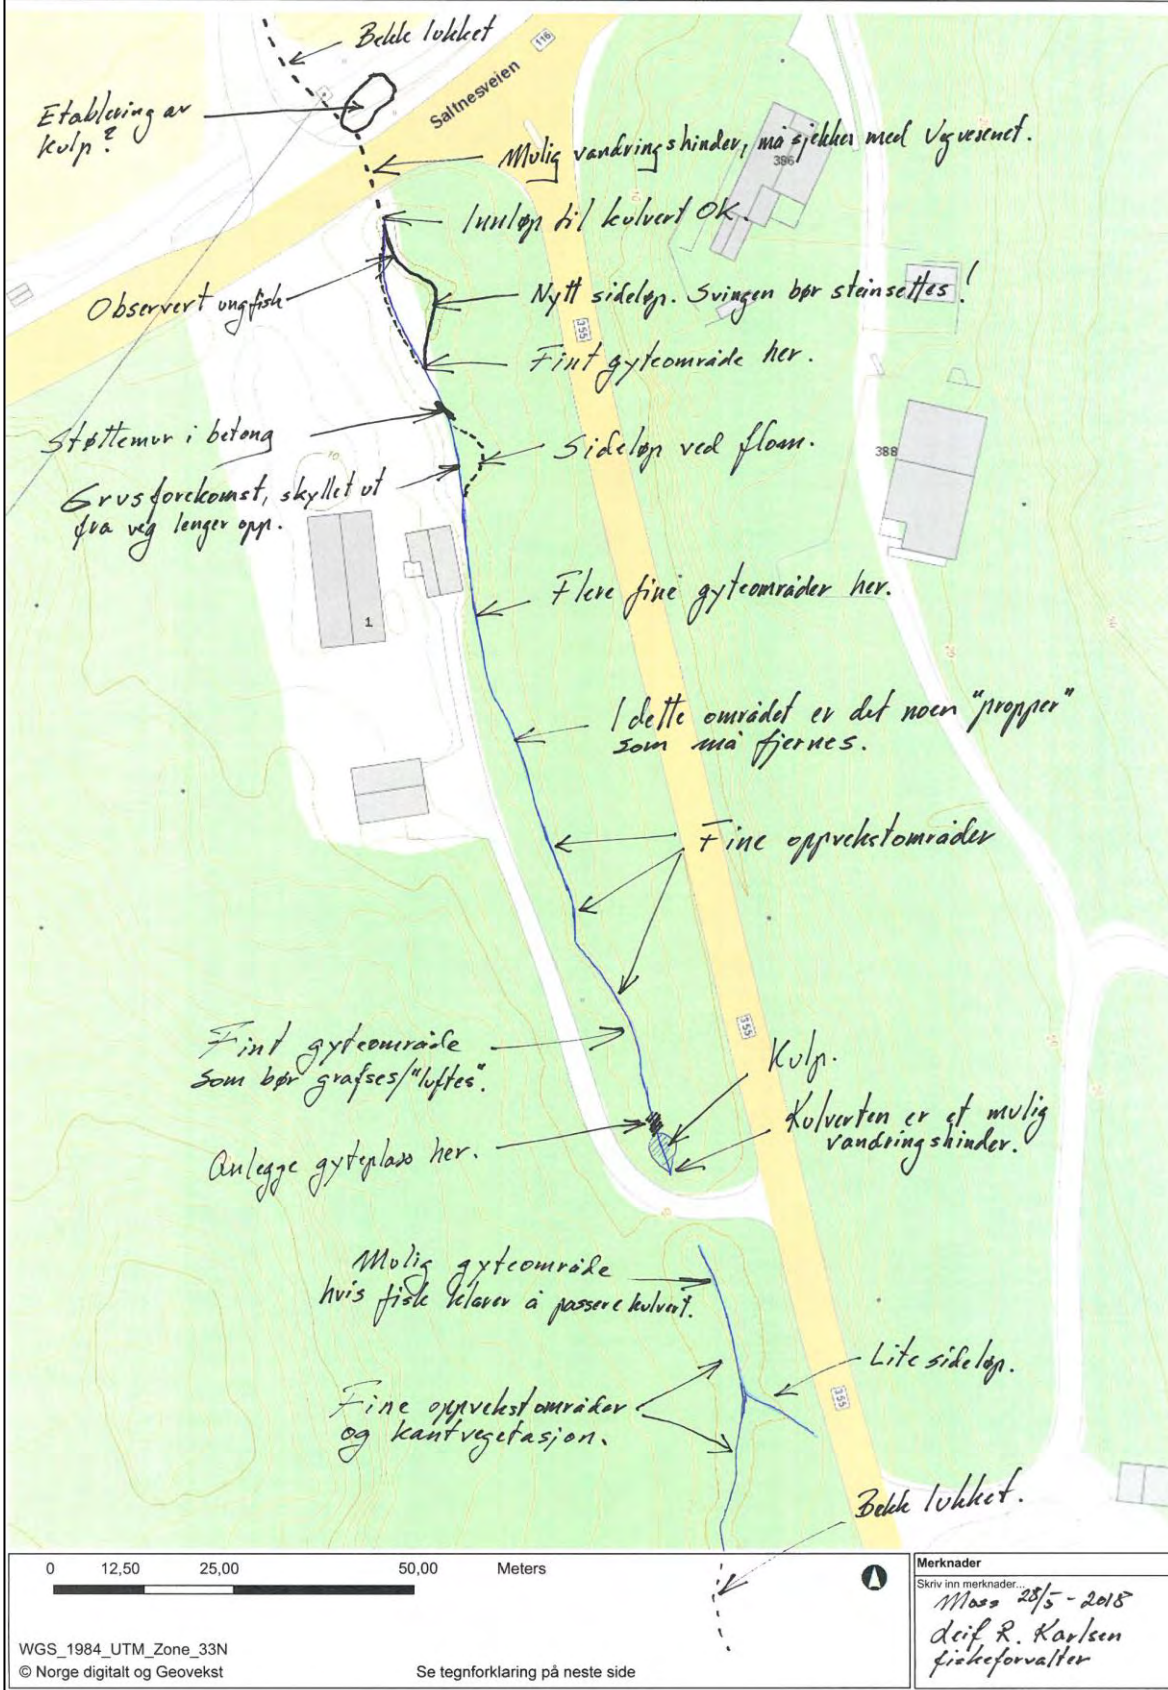 Bekk lukket
116
Etablering av
kulp?
Saltnesveien
Mulig vandringshinder, må sjekkes med Vegvesenet.
386
Innløp til kulvert OK.
Observert ungfisk
Nytt sideløp. Svingen bør steinsettes!
355
Fint gyteområde her.
Støttemur i betong
Sideløp ved flom.
388
Grusforekomst, skyllet ut
fra veg lenger opp.
Flere fine gyteområder her.
1
I dette området er det noen "propper"
som må fjernes.
Fine oppvekstområder
355
Fint gyteområde
som bør grafses/"luftes".
Kulp.
Kulverten er et mulig
vandringshinder.
Anlegge gyteplass her.
Mulig gyteområde
hvis fisk klarer å passere kulvert.
Lite sideløp.
355
Fine oppvekstområder
og kantvegetasjon.
Bekk lukket.
0 12,50 25,00 50,00 Meters
WGS_1984_UTM_Zone_33N
© Norge digitalt og Geovekst
Se tegnforklaring på neste side
Merknader
Skriv inn merknader...
Moss 28/5 - 2018
Leif R. Karlsen
fiskeforvalter